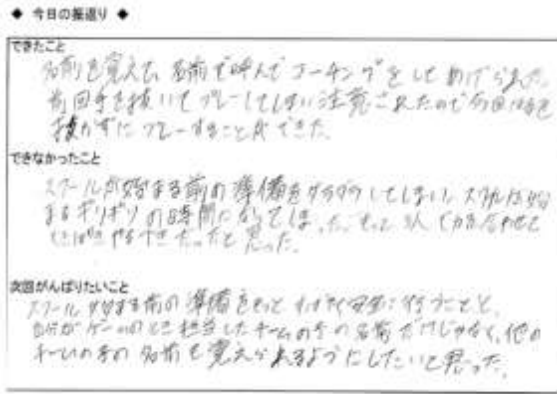 ◆ 今日の振返り ◆
できたこと
名前を覚えて、名前で呼んでコーチングをしてあげられた。
前回手を抜いてプレーしてしまい注意されたので今回は手を
抜かずにプレーすることができた。
できなかったこと
スクールが始まる前の準備をダラダラしてしまい、スクールが始
まるギリギリの時間になってしまった。もっと 3人で力を合わせて
てきぱきやるべきだったと思った。
次回がんばりたいこと
スクールが始まる前の準備をもっと すばやく 行うことと、
自分がゲームのとき担当したチームの子の名前だけじゃなく、他の
チームの子の名前も覚えられるようにしたいと思った。